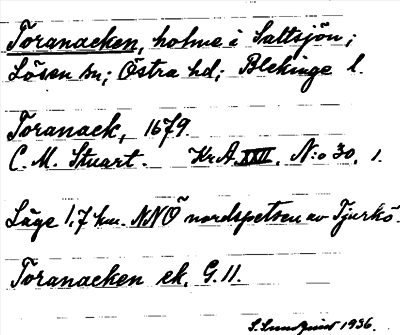 Toranacken, holme i Saltsjön;
Lösen sn; Östra hd; Blekinge l.
Toranack, 1679.
C. M. Stuart. KrA XXII. N:o 30, 1.
Läge 1,7 km. NNÖ nordspetsen av Tjurkö.
Toranacken ek. G. 11.
S. Sundquist 1936.